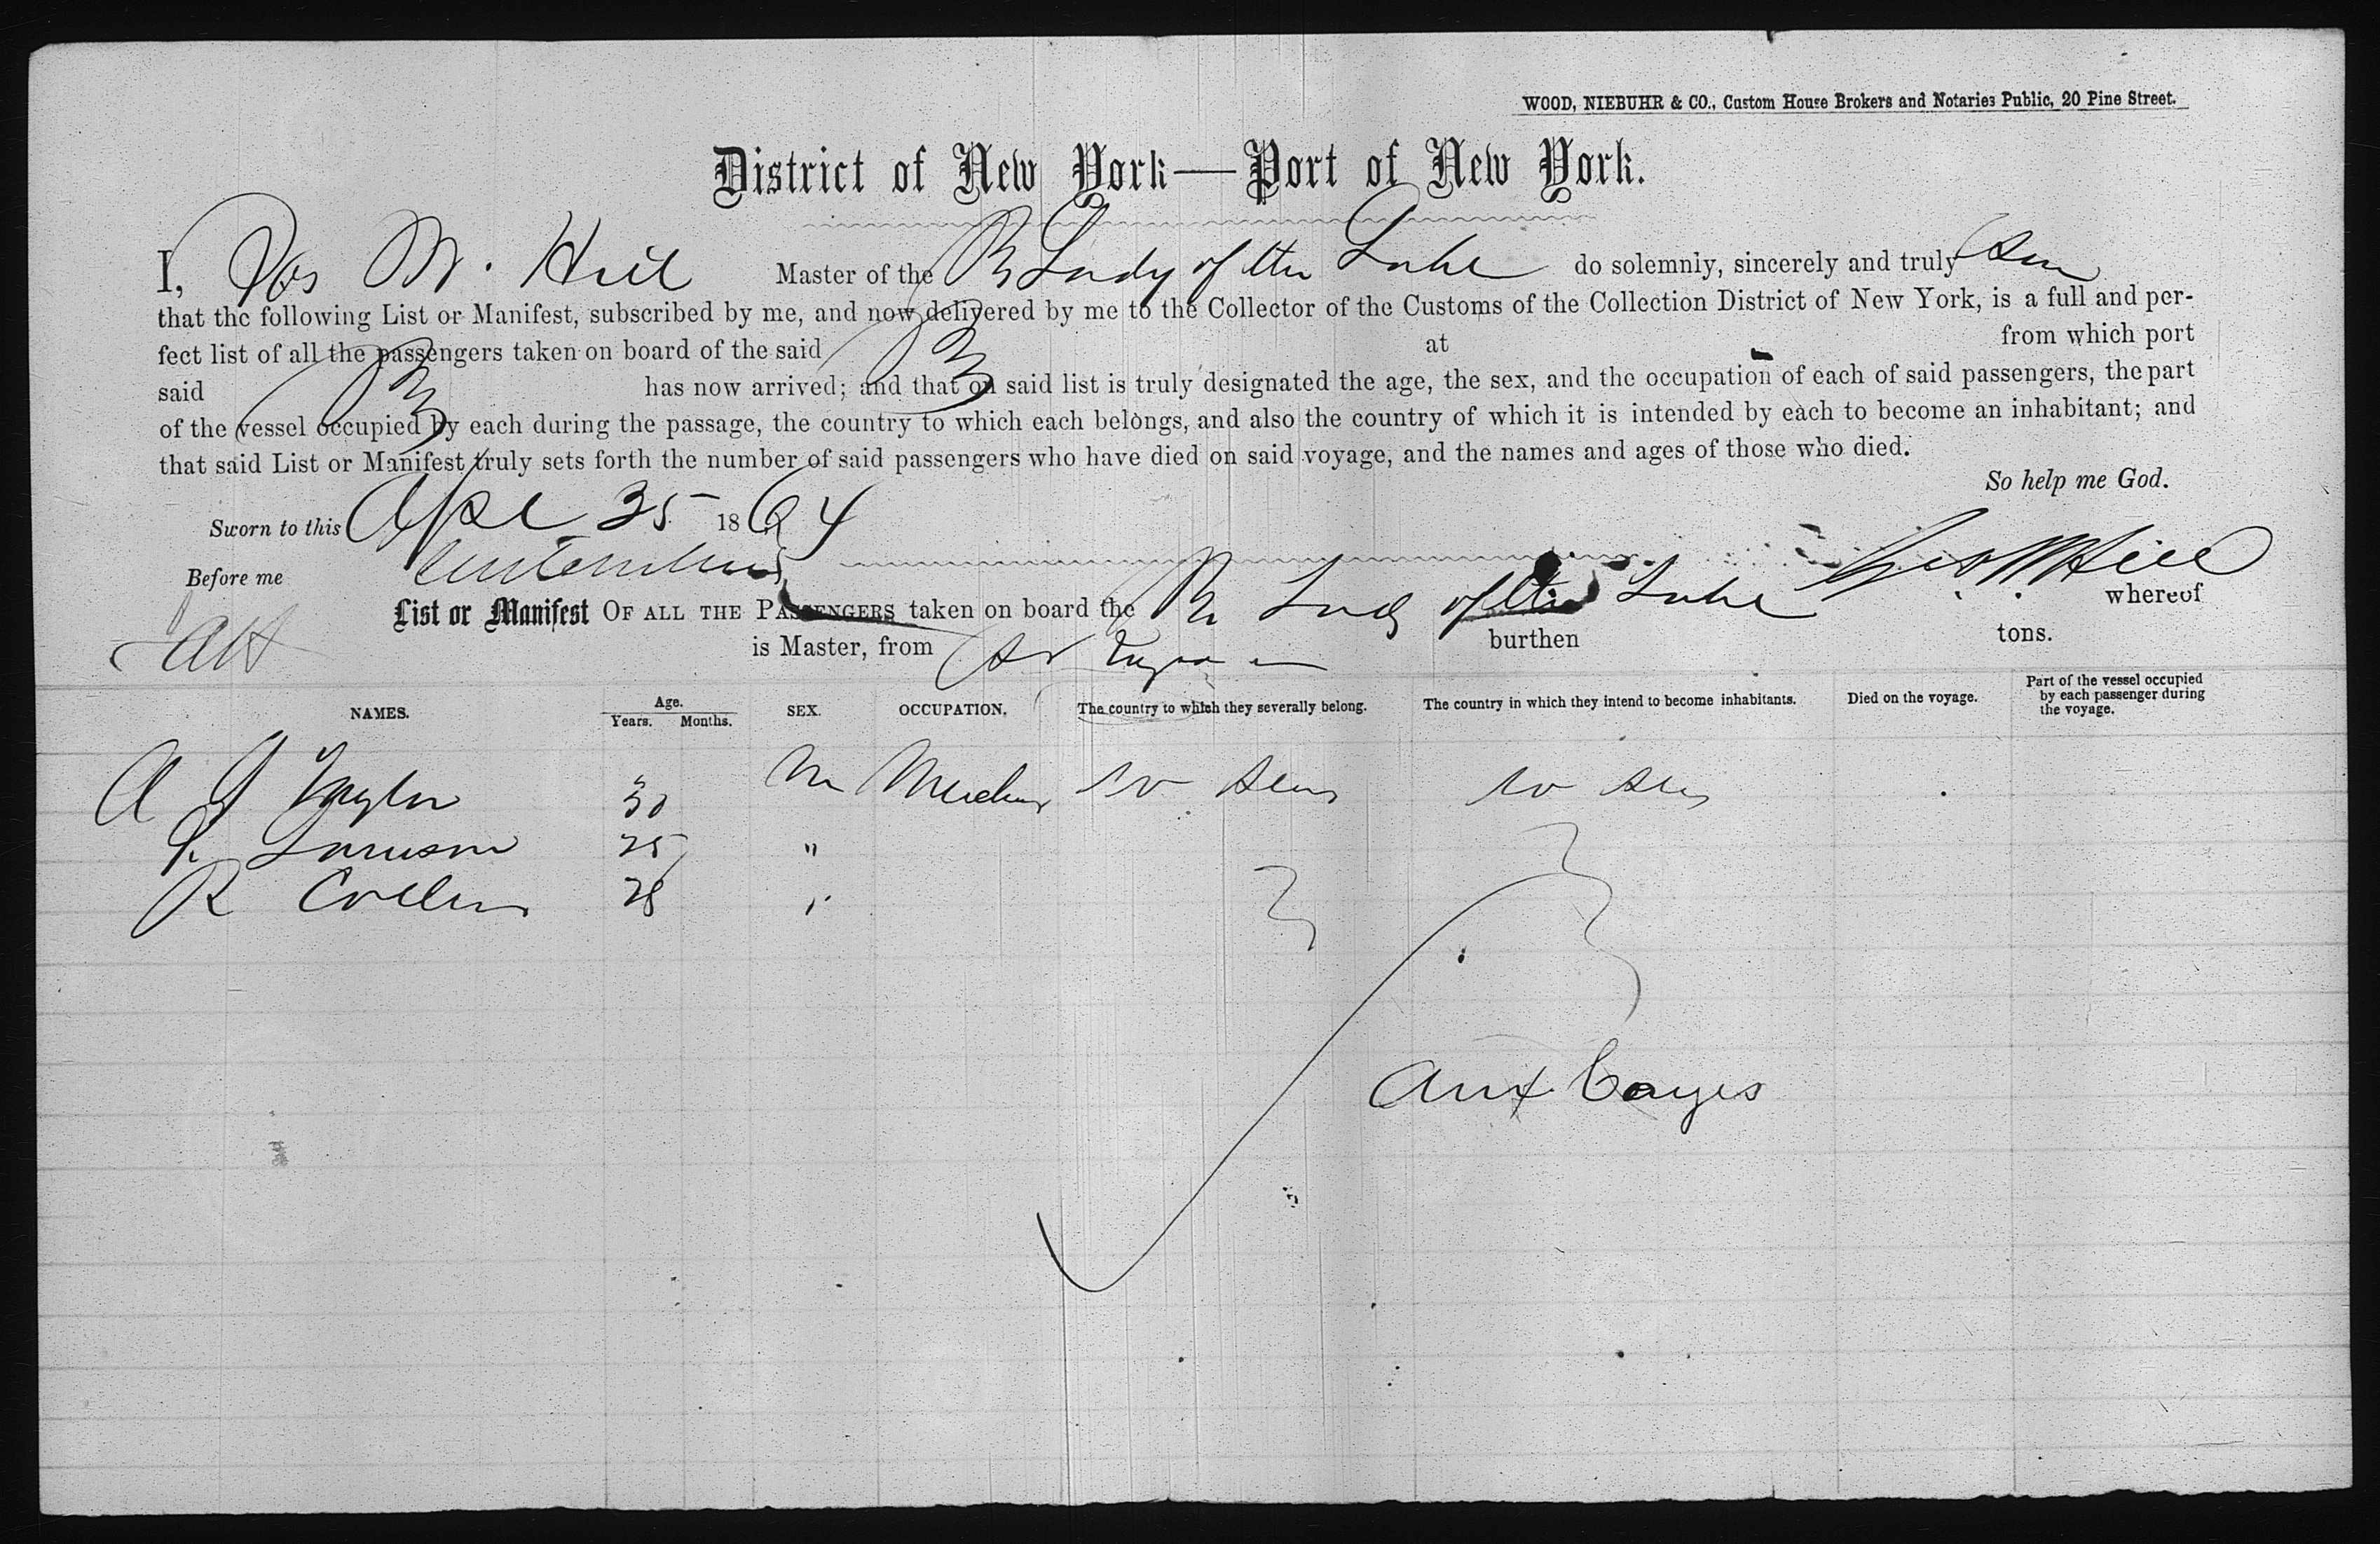 WOOD, NIEBUHR & CO., Custom House Brokers and Notaries Public, 20 Pine Street.
District of New York—Port of New York.
I, M. Hill Master of the Lady of the Lake do solemnly, sincerely and truly
that the following List or Manifest, subscribed by me, and now delivered by me to the Collector of the Customs of the Collection District of New York, is a full and per-
fect list of all the passengers taken on board of the said B at from which port
said B has now arrived; and that on said list is truly designated the age, the sex, and the occupation of each of said passengers, the part
of the vessel occupied by each during the passage, the country to which each belongs, and also the country of which it is intended by each to become an inhabitant; and
that said List or Manifest truly sets forth the number of said passengers who have died on said voyage, and the names and ages of those who died.
So help me God.
Sworn to this 1864
Before me
Hill
List or Manifest OF ALL THE PASSENGERS taken on board the Lady of the Lake whereof
is Master, from burthen tons.
NAMES. Age. Years. Months. SEX. OCCUPATION. The country to which they severally belong. The country in which they intend to become inhabitants. Died on the voyage. Part of the vessel occupied by each passenger during the voyage.
A Taylor 30 M
25 "
R Collins 28 "
Aux Cayes